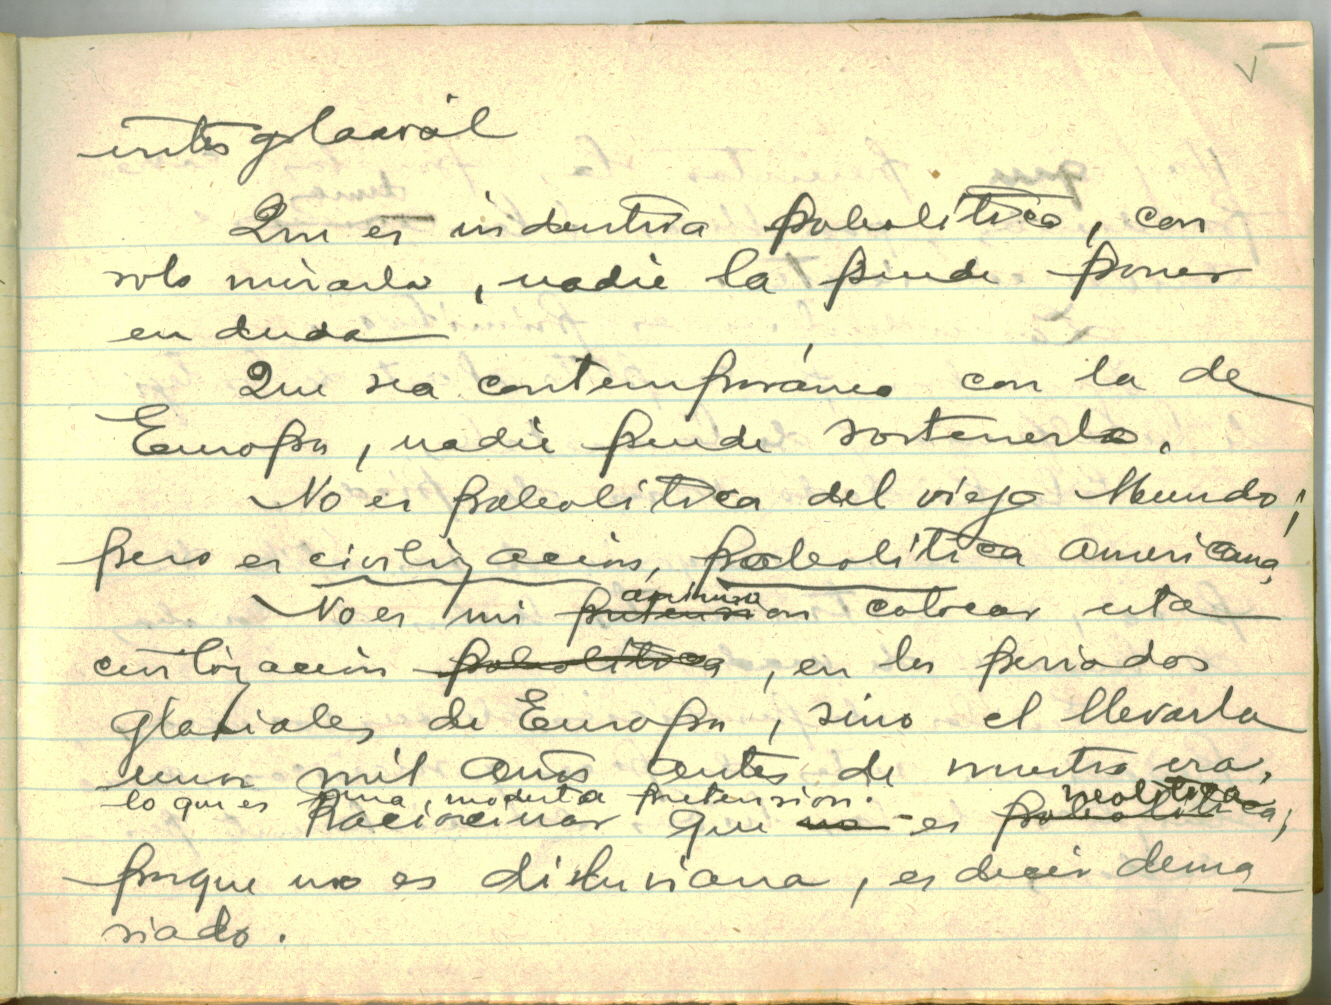 interglacial
Que es industria paleolítica, con
solo mirarla, nadie la puede poner
en duda
Que sea contemporánea con la de
Europa, nadie puede sostenerlo.
No es paleolítica del viejo Mundo;
pero es civilización, paleolítica americana,
No es mi pretension colocar esta
civilización paleolítica, en los periodos
glaciales de Europa, sino el llevarla
unos mil años antes de nuestra era,
lo que es una, modesta pretension. neolitica
Raciocinar que no es paleolitica;
porque no es diluviana, es decir dema
siado.